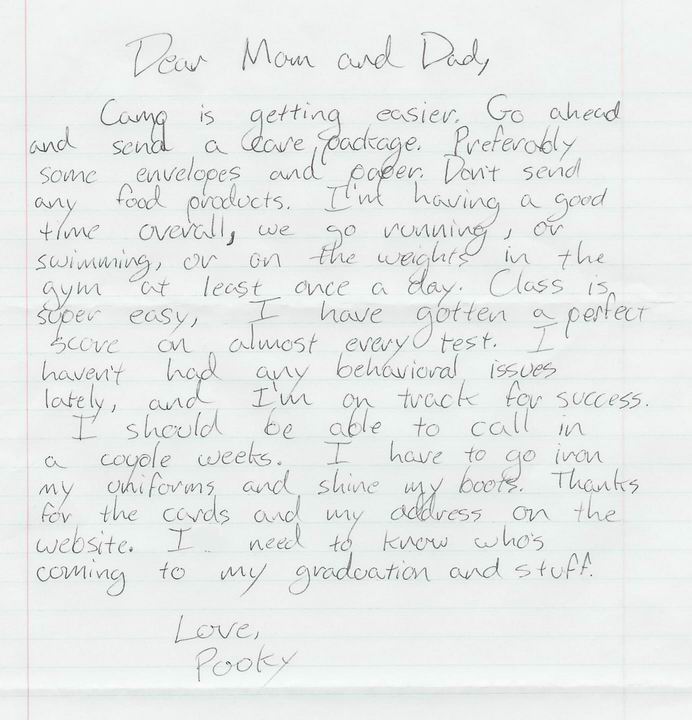 Dear Mom and Dad,
Camp is getting easier. Go ahead
and send a care package. Preferably
some envelopes and paper. Don't send
any food products. I'm having a good
time overall, we go running, or
swimming, or on the weights in the
gym at least once a day. Class is
super easy, I have gotten a perfect
score on almost every test. I
haven't had any behavioral issues
lately, and I'm on track for success.
I should be able to call in
a couple weeks. I have to go iron
my uniforms and shine my boots. Thanks
for the cards and my address on the
website. I need to know who's
coming to my graduation and stuff.
Love,
Pooky